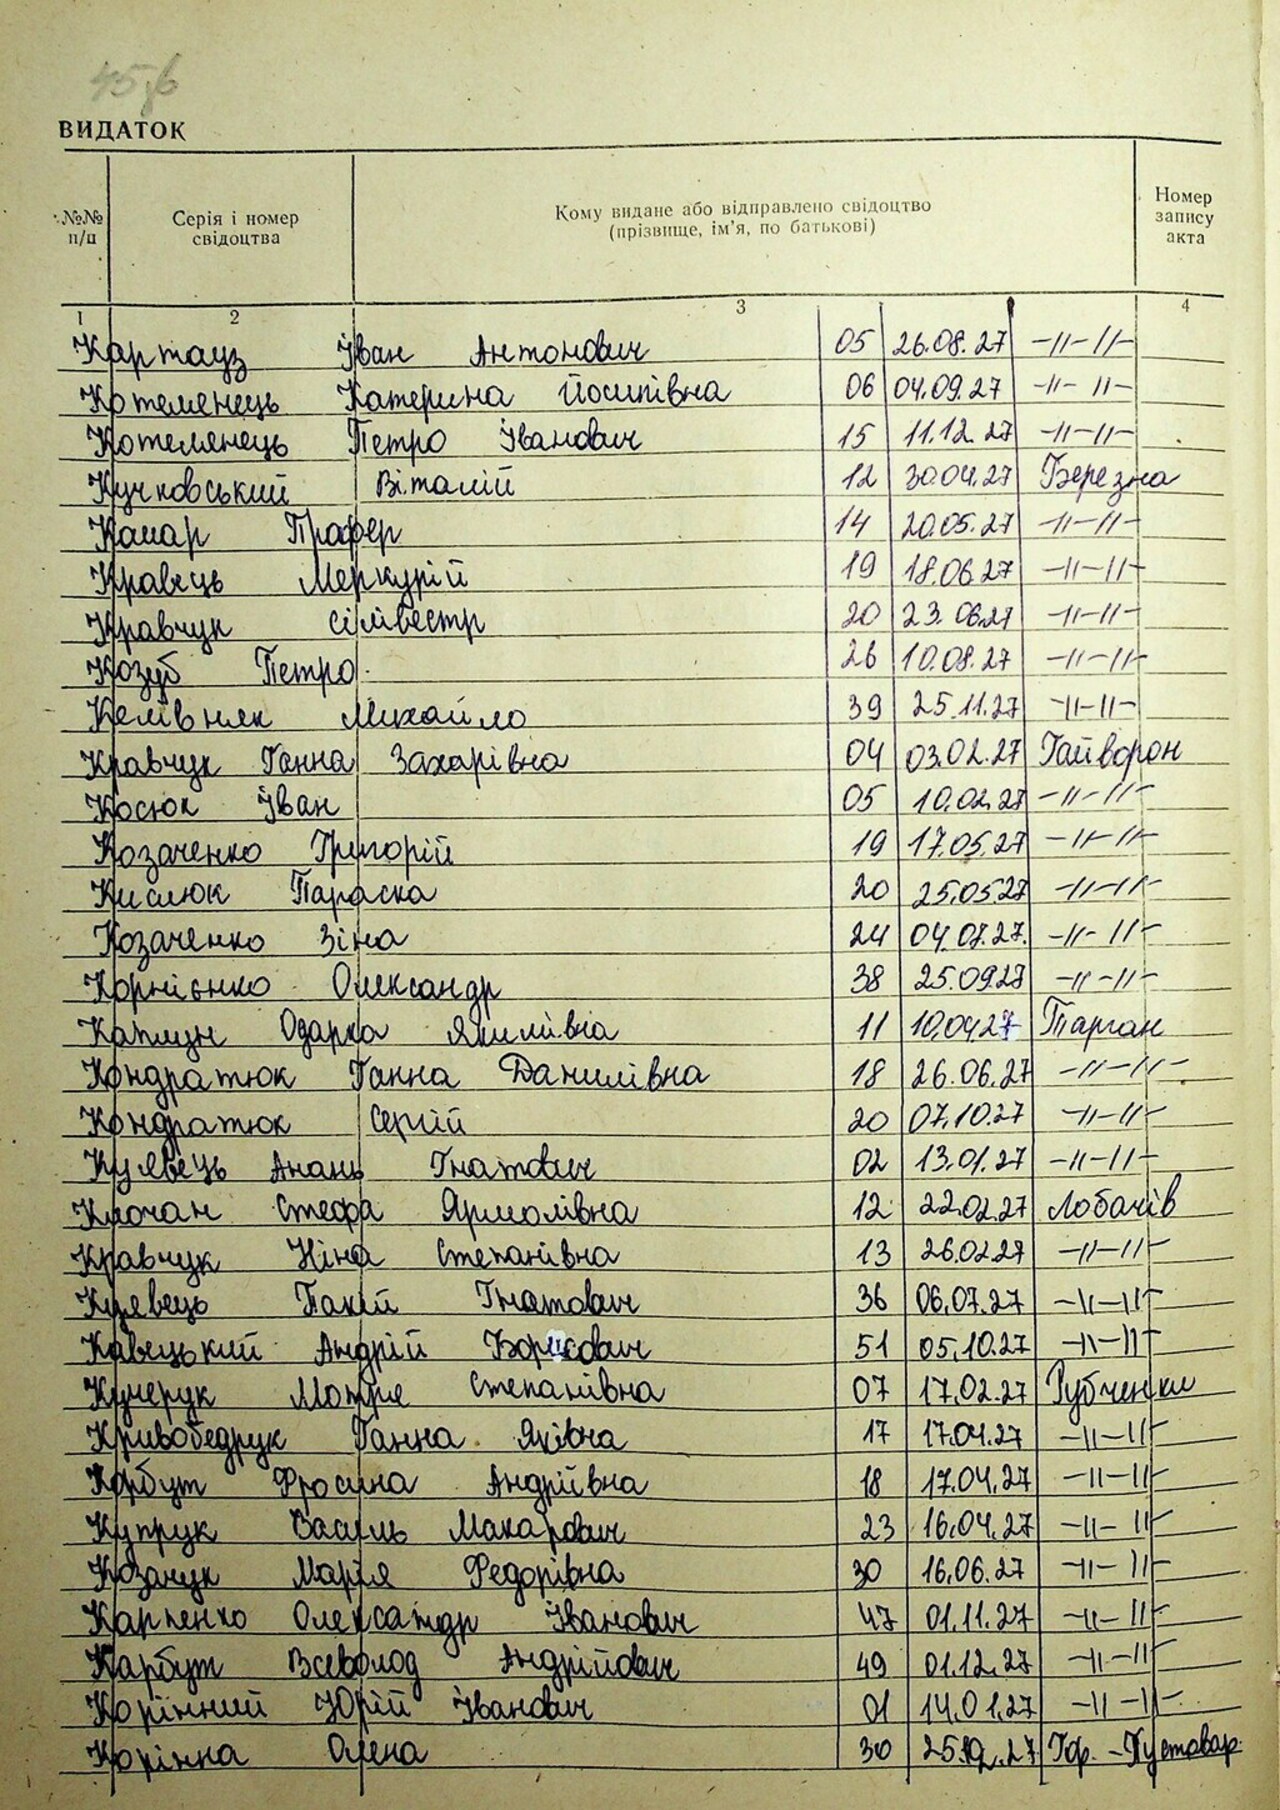 ВИДАТОК
№№ п/п
Серія і номер свідоцтва
Кому видане або відправлено свідоцтво (прізвище, ім'я, по батькові)
Номер запису акта
1 2 3 4
Картауз Іван Антонович 05 26.08.27 -//-//-
Котеленець Катерина Йосипівна 06 04.09.27 -//-//-
Котелянець Петро Іванович 15 11.12.27 -//-//-
Кучковський Віталій 12 30.04.27 Березна
Камар 14 20.05.27 -//-//-
Кравець Меркурій 19 18.06.27 -//-//-
Кравчук Сілівестр 20 23.06.27 -//-//-
Козуб Петро 26 10.08.27 -//-//-
Михайло 39 25.11.27 -//-//-
Кравчук Ганна Захарівна 04 03.02.27 Гайворон
Косюк Іван 05 10.02.27 -//-//-
Козаченко Григорій 19 17.05.27 -//-//-
Кислюк Параска 20 25.05.27 -//-//-
Козаченко Зіна 24 04.07.27. -//-//-
Корнієнко Олександр 38 25.09.27 -//-//-
Каплун Одарка Якимівна 11 10.04.27 Тарган
Кондратюк Ганна Данилівна 18 26.06.27 -//-//-
Кондратюк Сергій 20 07.10.27 -//-//-
Куявець Анань Гнатович 02 13.01.27 -//-//-
Клочан Стефа Ярмолівна 12 22.02.27 Лобачів
Кравчук Ніна Степанівна 13 26.02.27 -//-//-
Куявець Гнатович 36 06.07.27 -//-//-
Кавецький Андрій Борисович 51 05.10.27 -//-//-
Кучерук Мотря Степанівна 07 17.02.27 Рубченки
Кривобедрук Ганна Яківна 17 17.04.27 -//-//-
Корбут Фросина Андріївна 18 17.04.27 -//-//-
Купрук Василь Макарович 23 16.04.27 -//-//-
Козачук Марія Федорівна 30 16.06.27 -//-//-
Карпенко Олександр Іванович 47 01.11.27 -//-//-
Карбут Всеволод Андрійович 49 01.12.27 -//-//-
Корінний Юрій Іванович 01 14.01.27 -//-//-
Корінна Олена 30 Гор.-Пустовар.